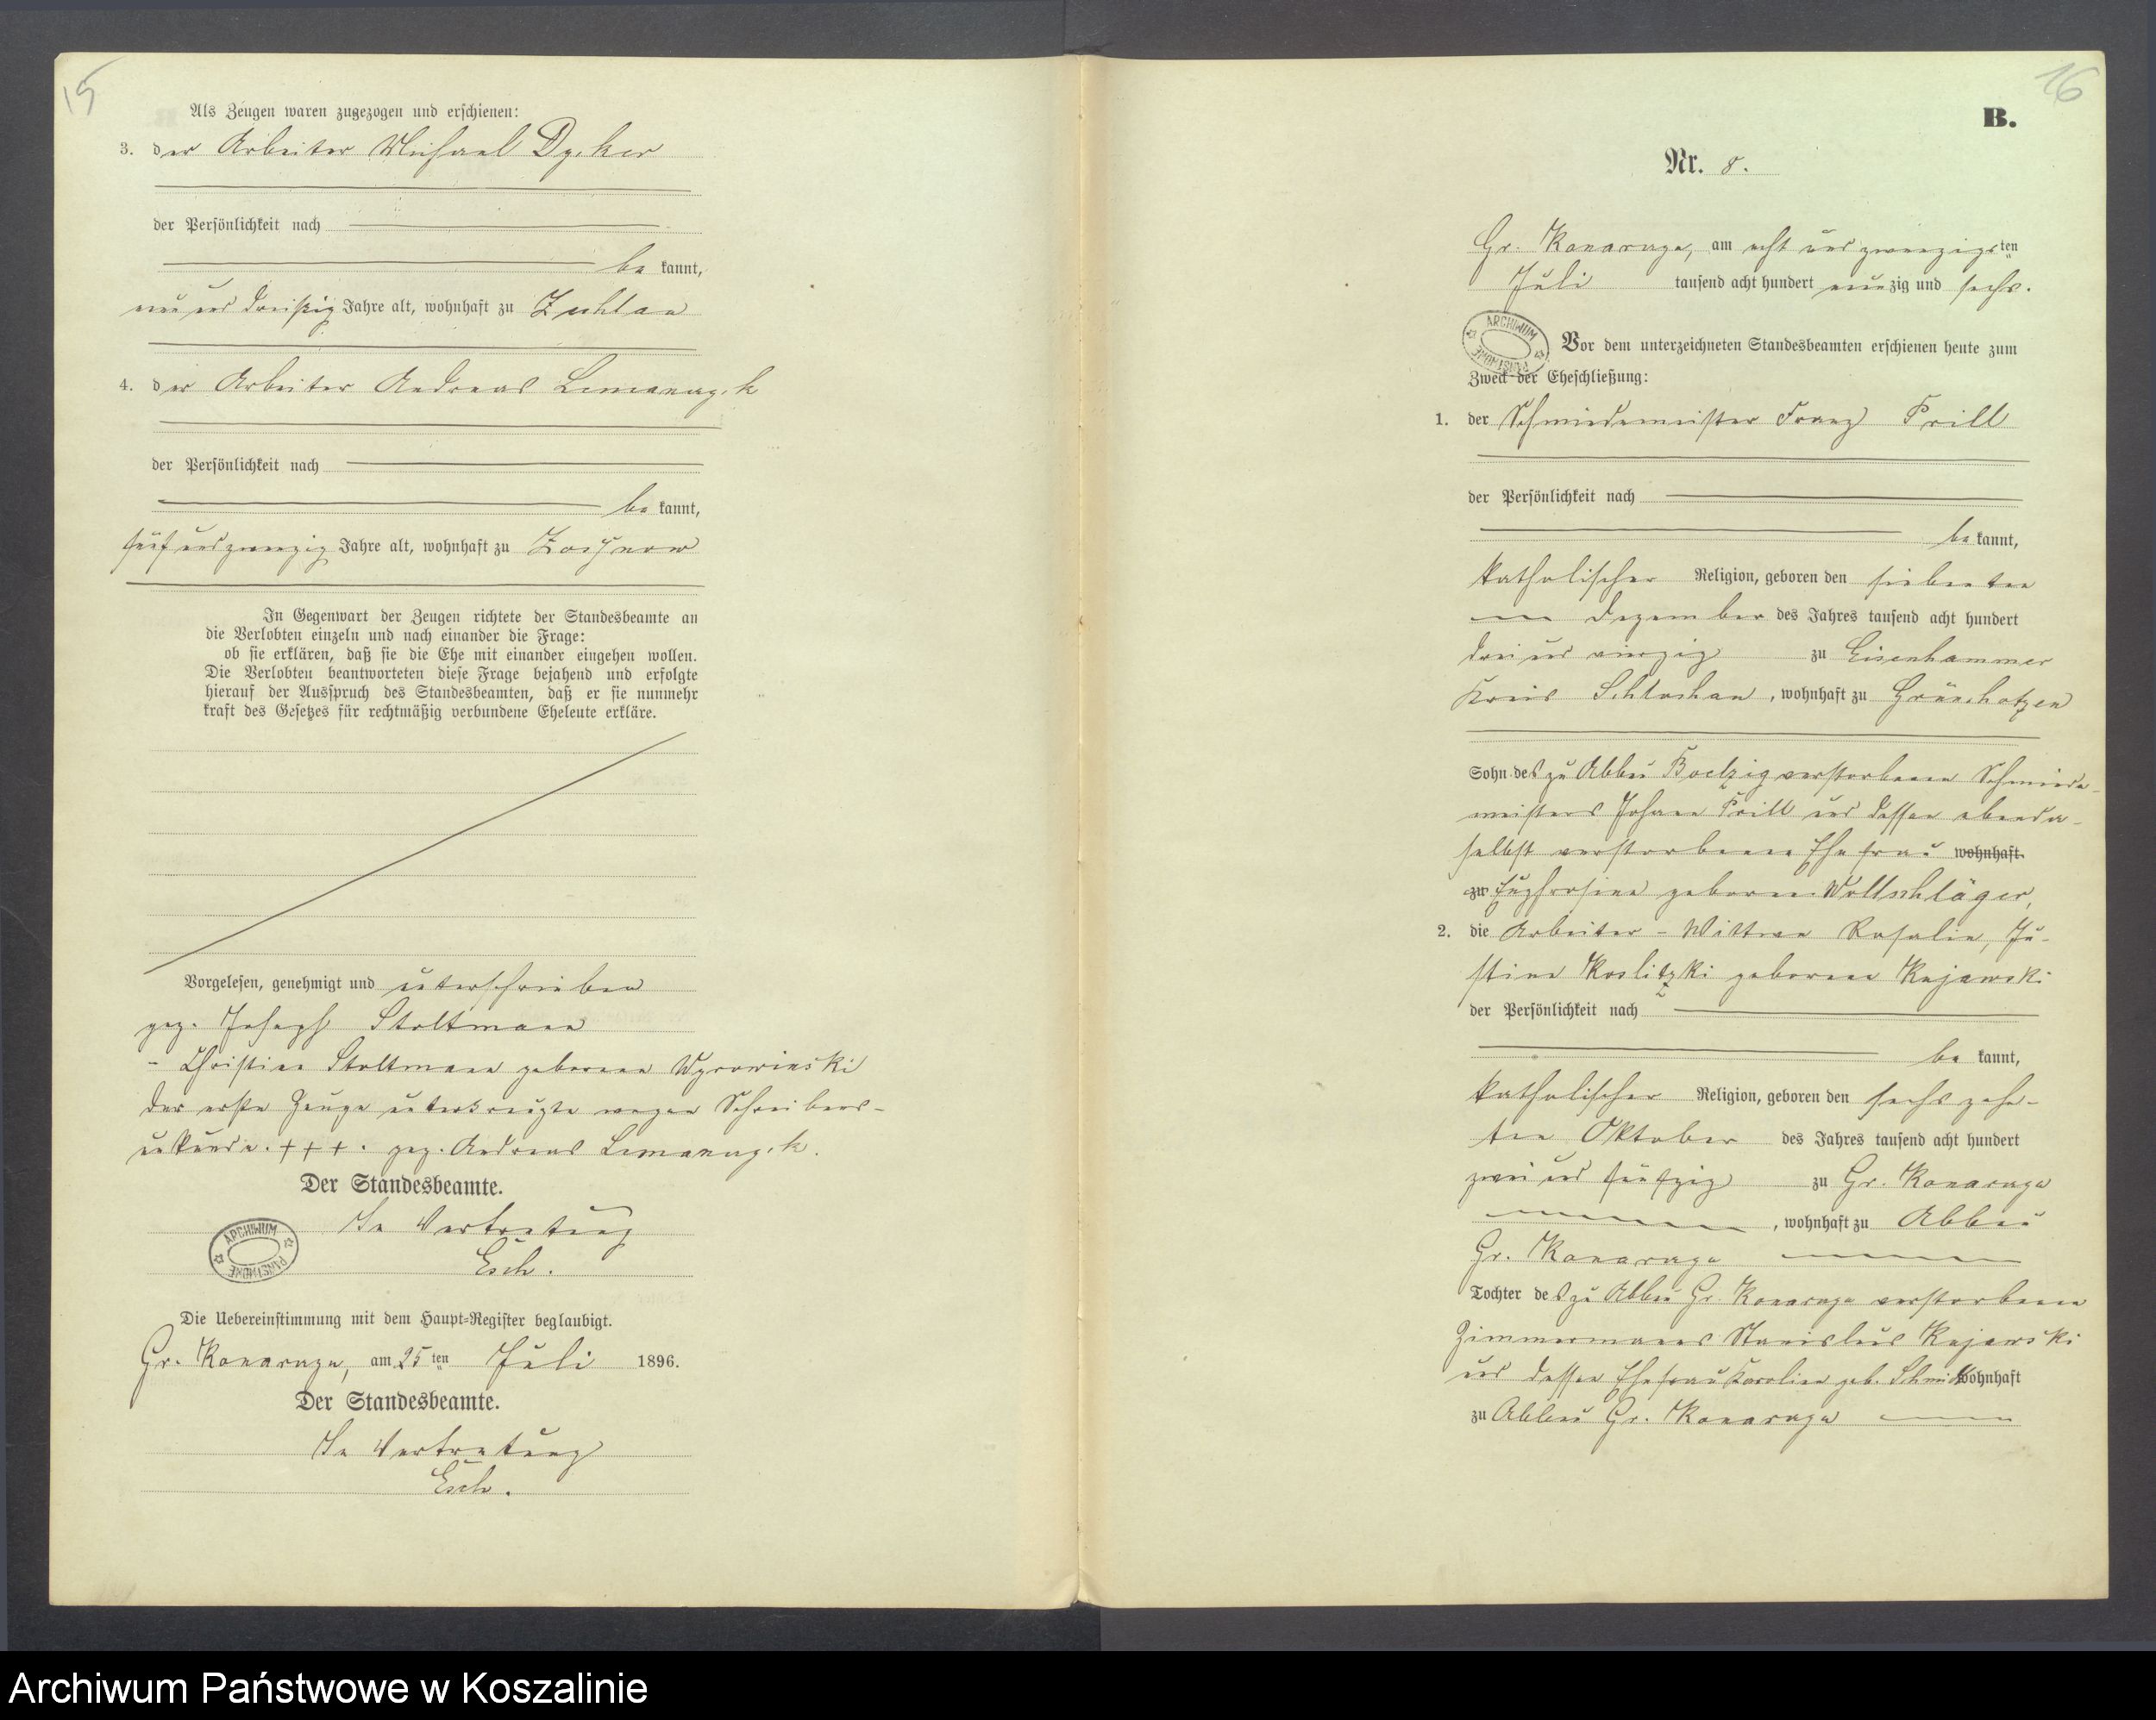 15
Als Zeugen waren zugezogen und erschienen:
3. der Arbeiter Michael Dycker
der Persönlichkeit nach
be kannt,
neun und dreißig Jahre alt, wohnhaft zu Zechlau
4. der Arbeiter Andreas Lemanczyk
der Persönlichkeit nach
be kannt,
fünf und zwanzig Jahre alt, wohnhaft zu
In Gegenwart der Zeugen richtete der Standesbeamte an
die Verlobten einzeln und nach einander die Frage:
ob sie erklären, daß sie die Ehe mit einander eingehen wollen.
Die Verlobten beantworteten diese Frage bejahend und erfolgte
hierauf der Ausspruch des Standesbeamten, daß er sie nunmehr
kraft des Gesetzes für rechtmäßig verbundene Eheleute erkläre.
Vorgelesen, genehmigt und unterschrieben
gez. Joseph Stoltmann
- Christine Stoltmann geborene Wyrowinski
Der erste Zeuge unterkreuzte wegen Schreibens-
unkunde. +++. gez. Andreas Lemanczyk.
Der Standesbeamte.
In Vertretung
Esch.
ARCHIWUM PAŃSTWOWE
Die Uebereinstimmung mit dem Haupt-Register beglaubigt.
Gr. Konarczyn, am 25 ten Juli 1896.
Der Standesbeamte.
In Vertretung
Esch.
16
B.
Nr. 8.
Gr. Konarczyn, am acht und zwanzigsten
Juli tausend acht hundert neunzig und sechs.
ARCHIWUM PAŃSTWOWE
Vor dem unterzeichneten Standesbeamten erschienen heute zum
Zweck der Eheschließung:
1. der Schmiedemeister Franz Prill
der Persönlichkeit nach
be kannt,
katholischer Religion, geboren den siebenten
Dezember des Jahres tausend acht hundert
drei und vierzig zu Eisenhammer
Kreis Schlochau, wohnhaft zu Grünchotzen
Sohn des zu Abbau Boelzig verstorbenen Schmiede-
meisters Johann Prill und dessen ebenda-
selbst verstorbenen Ehefrau wohnhaft
zu Euphrosine geborene Wollschläger,
2. die Arbeiter-Wittwe Rosalie, Ju-
stine Koslitzki geborene Kujawski
der Persönlichkeit nach
be kannt,
katholischer Religion, geboren den sechszehn-
ten Oktober des Jahres tausend acht hundert
zwei und fünfzig zu Gr. Konarczyn
, wohnhaft zu Abbau
Gr. Konarczyn
Tochter des zu Abbau Gr. Konarczyn verstorbenen
Zimmermanns Stanislaus Kujawski
und dessen Ehefrau Karoline geb. Schmidt wohnhaft
zu Abbau Gr. Konarczyn
Archiwum Państwowe w Koszalinie